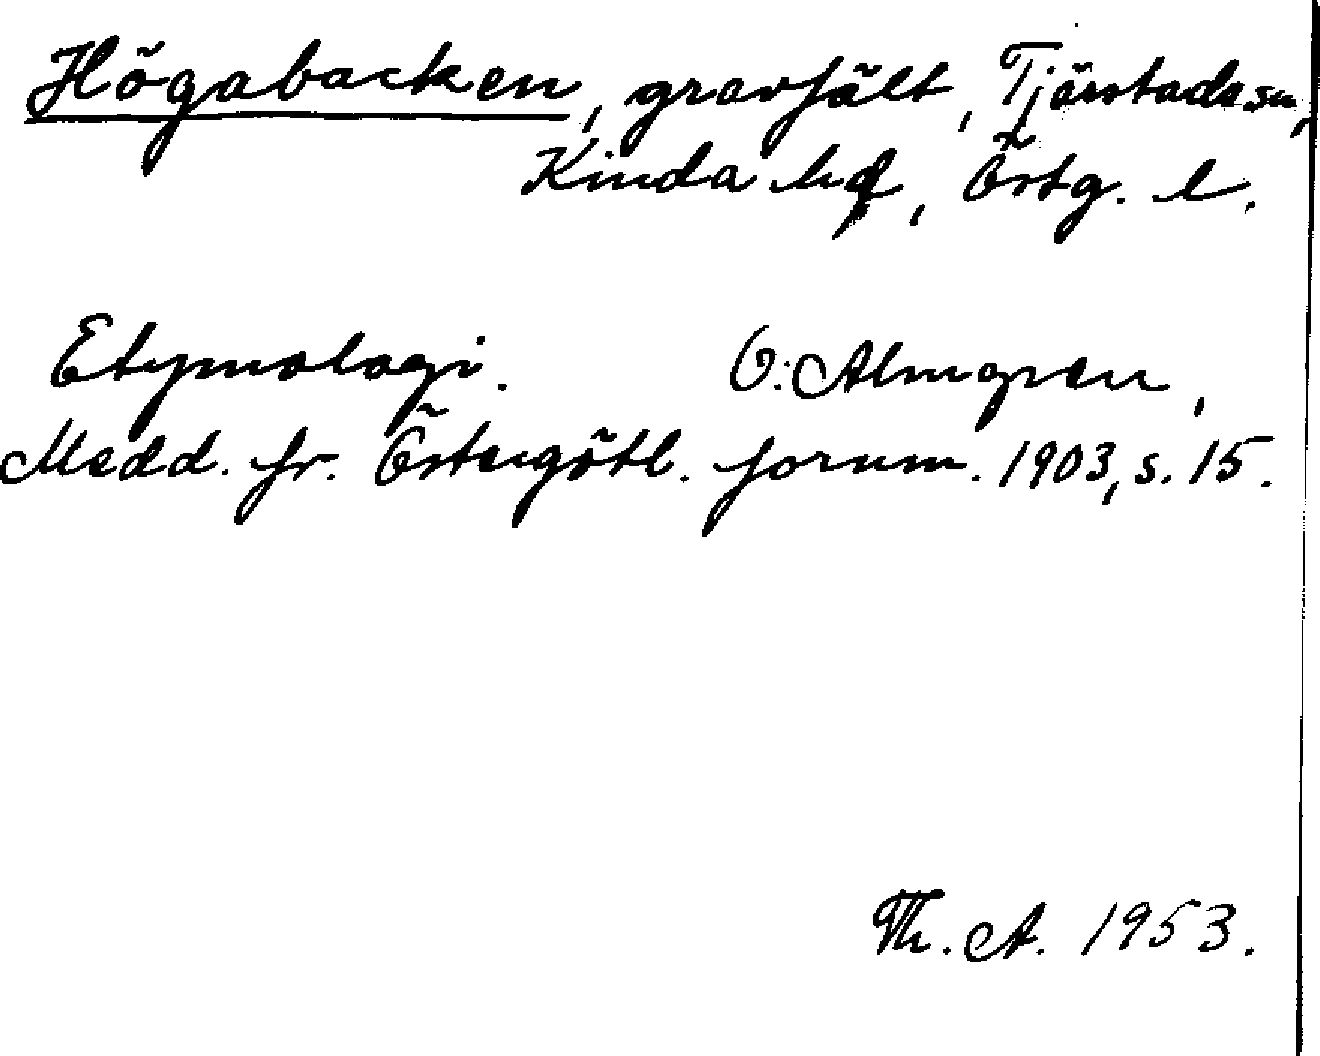 Högabacken, gravfält, Tjärstads sn,
Kinda hd, Östg. l.
Etymologi. O. Almgren,
Medd. fr. Östergötl. fornm. 1903, s. 15.
Th. A. 1953.